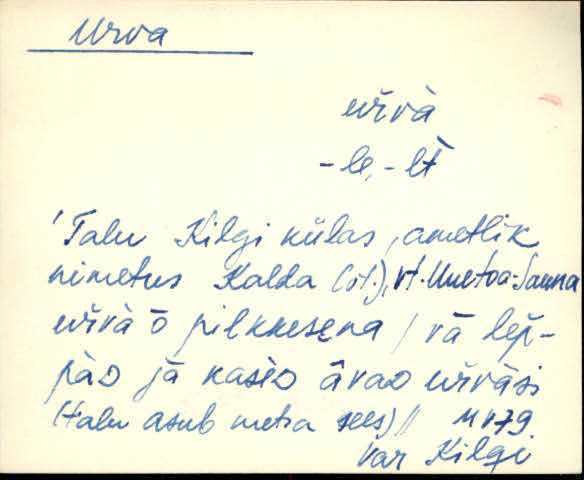 Urva
urva
-le, -lt
'Talu Kilgi külas, ametlik
nimetus Kalda (vt.), vt. Uuetoa-Sauna
urva ō pilkkesena / vä lep-
päD jä kaseD āvaD urväsi
(talu asub metsa sees) // MV79
Var Kilgi